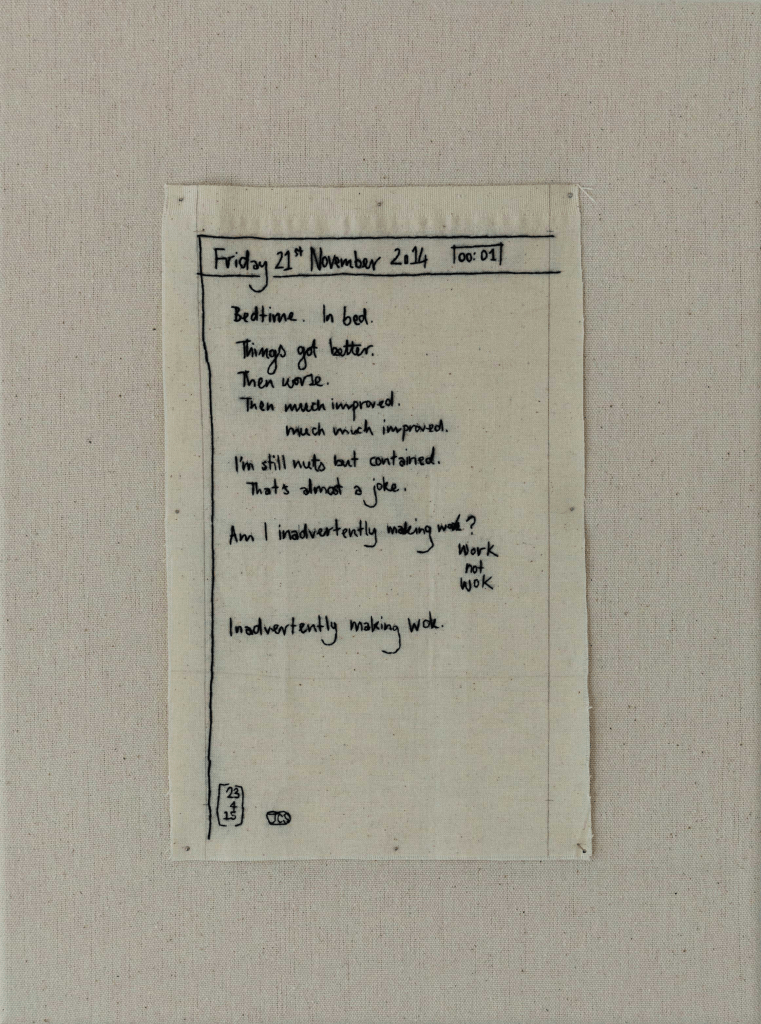 Friday 21st November 2014 00:01
Bedtime. In bed.
Things got better.
Then worse.
Then much improved.
much much improved.
I'm still nuts but contained.
That's almost a joke.
Am I inadvertently making wok?
work
not
wok
Inadvertently making wok.
23
4
15
JCS